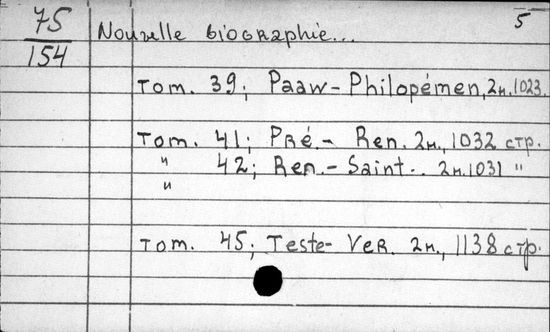 75 Nouvelle biographie... 5
154
Tom. 39; Paaw - Philopémen, 2н. 1023.
Tom. 41; Pré. - Ren. 2н., 1032 стр.
" 42; Ren. - Saint.. 2н. 1031 "
"
Tom. 45; Teste - Ver. 2н., 1138 стр.